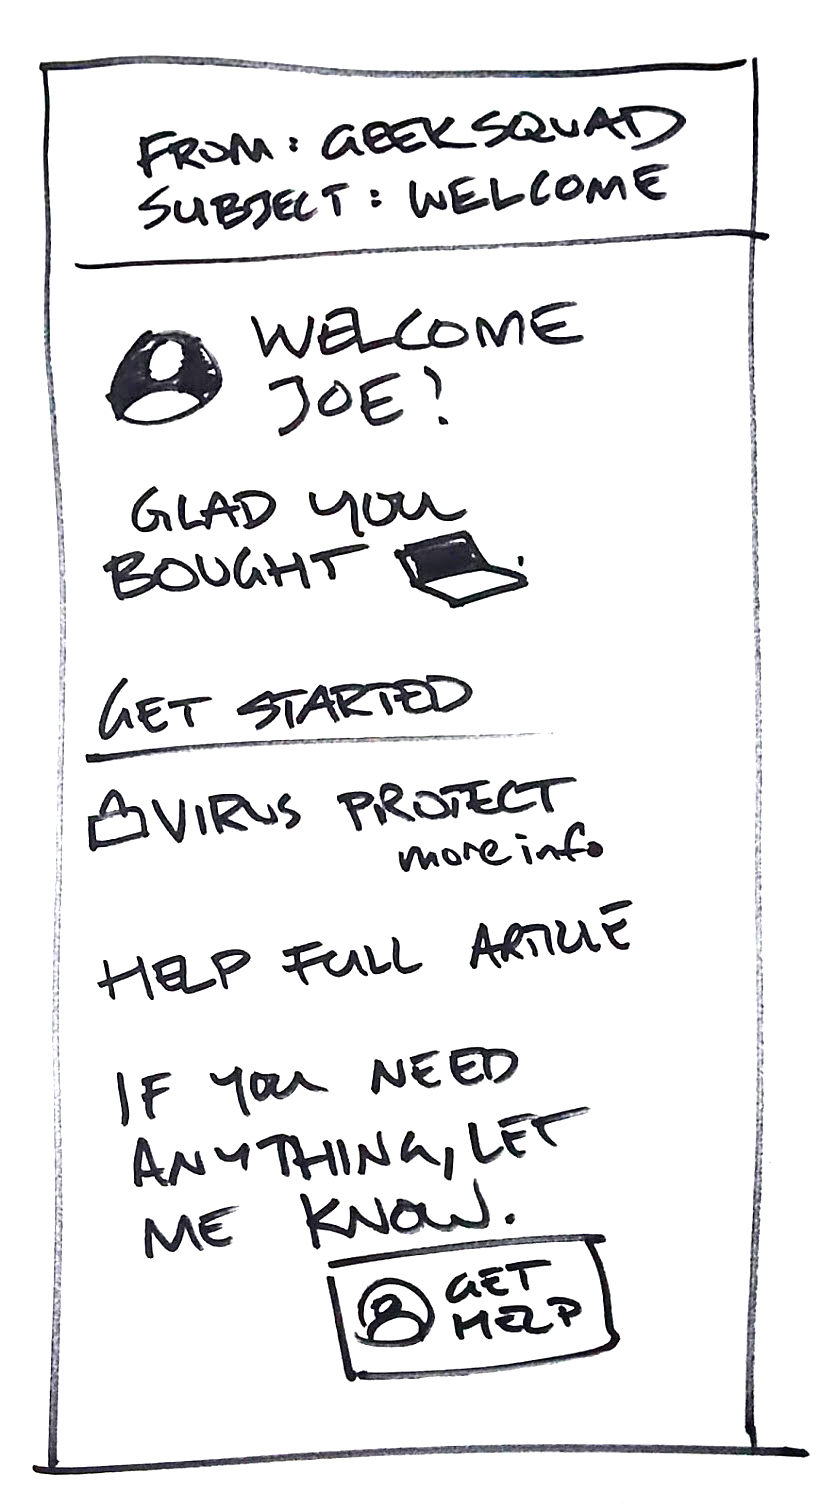 FROM: GEEK SQUAD
SUBJECT: WELCOME
WELCOME
JOE!
GLAD YOU
BOUGHT
GET STARTED
VIRUS PROTECT
more info
HELP FULL ARTICLE
IF YOU NEED
ANYTHING, LET
ME KNOW.
GET
HELP